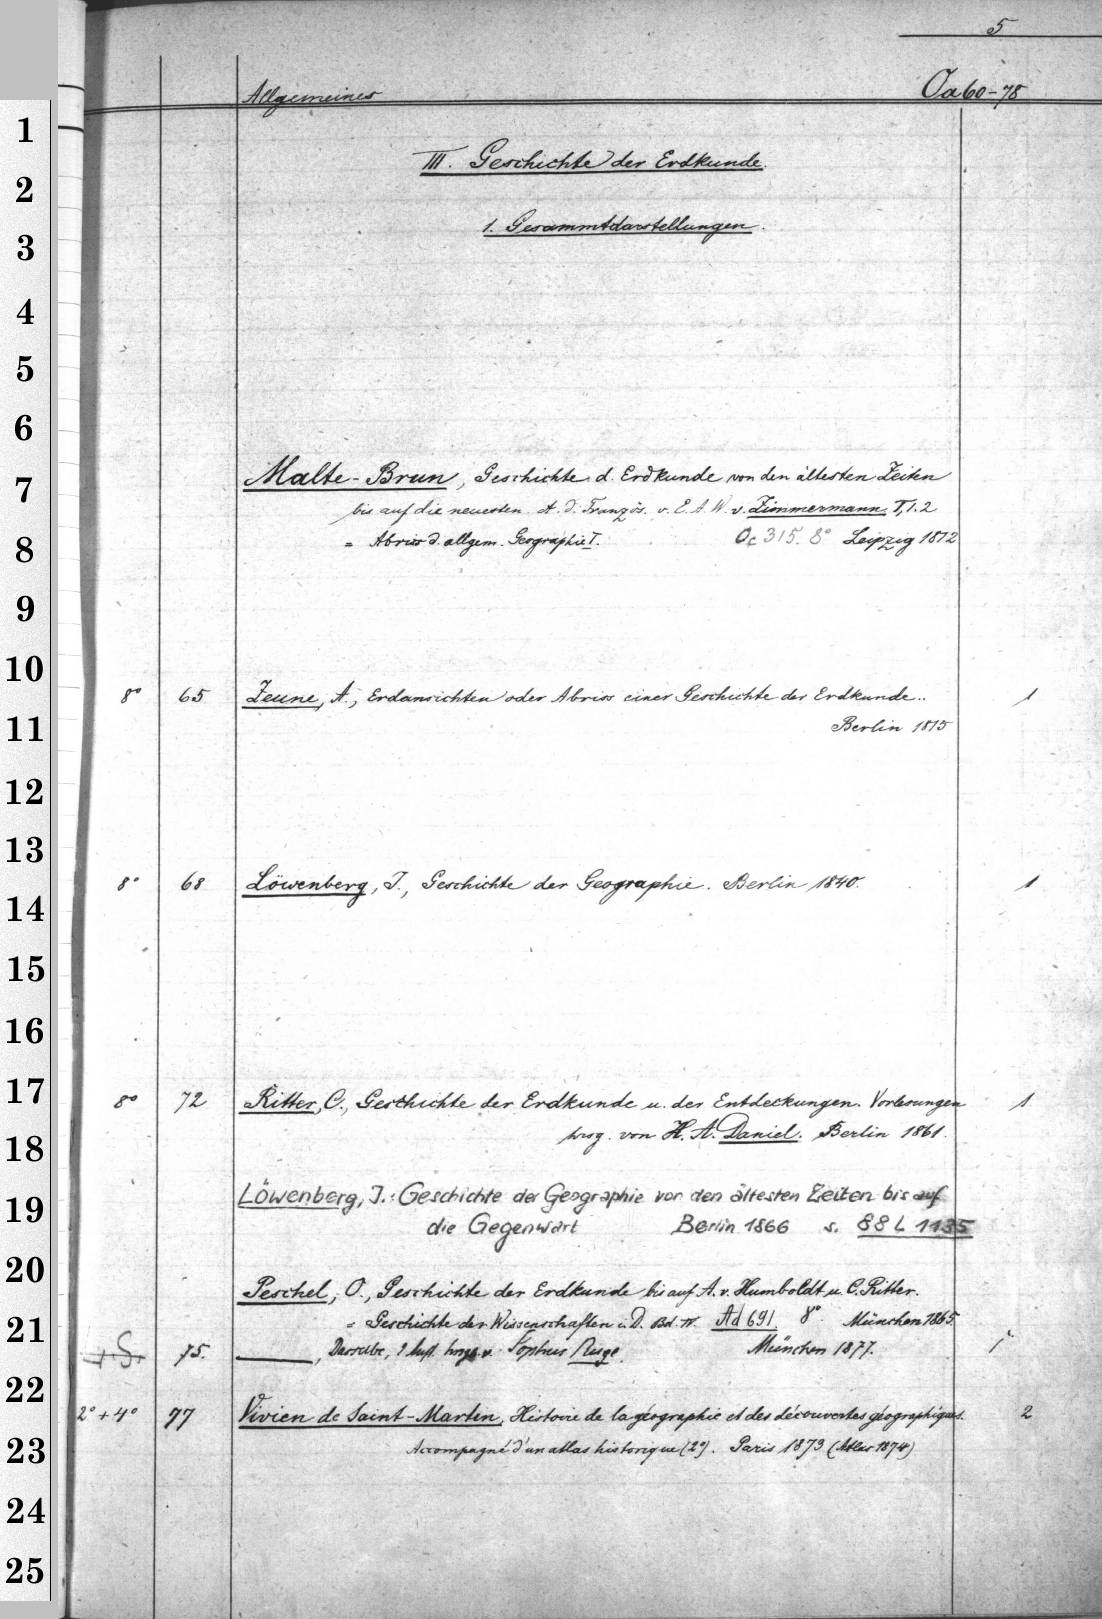 5
Allgemeines Oa 60-78
III. Geschichte der Erdkunde.
1. Gesammtdarstellungen.
Malte-Brun, Geschichte d. Erdkunde von den ältesten Zeiten
bis auf die neuesten. A. d. Französ. v. E. A. W. v. Zimmermann. T. 1. 2
= Abriss d. allgem. Geographie I. Oc 315. 8° Leipzig 1812
8° 65 Zeune, A., Erdansichten oder Abriss einer Geschichte der Erdkunde.. 1
Berlin 1815
8° 68 Löwenberg, J., Geschichte der Geographie. Berlin 1840. 1
8° 72 Ritter, C., Geschichte der Erdkunde u. der Entdeckungen. Vorlesungen 1
hrsg. von H. A. Daniel. Berlin 1861.
Löwenberg, J.: Geschichte der Geographie von den ältesten Zeiten bis auf
die Gegenwart Berlin 1866 s. 88 L 1135
Peschel, O., Geschichte der Erdkunde bis auf A. v. Humboldt u. C. Ritter.
= Geschichte der Wissenschaften i. D. Bd. IV. Ad 691. 8° München 1865.
75. ———, Dasselbe, 2 Aufl. hrsg. v. Sophus Ruge. München 1877. 1
2° + 4° 77 Vivien de Saint-Martin, Histoire de la géographie et des découvertes géographiques. 2
Accompagné d'un atlas historique (2°). Paris 1873 (Atlas 1874)
1
2
3
4
5
6
7
8
9
10
11
12
13
14
15
16
17
18
19
20
21
22
23
24
25